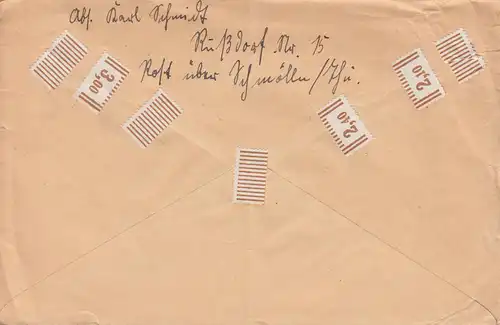 Abs. Karl Schmidt
Rußdorf Nr. 15
Post über Schmölln/Thü.
3,00
2,40
2,10